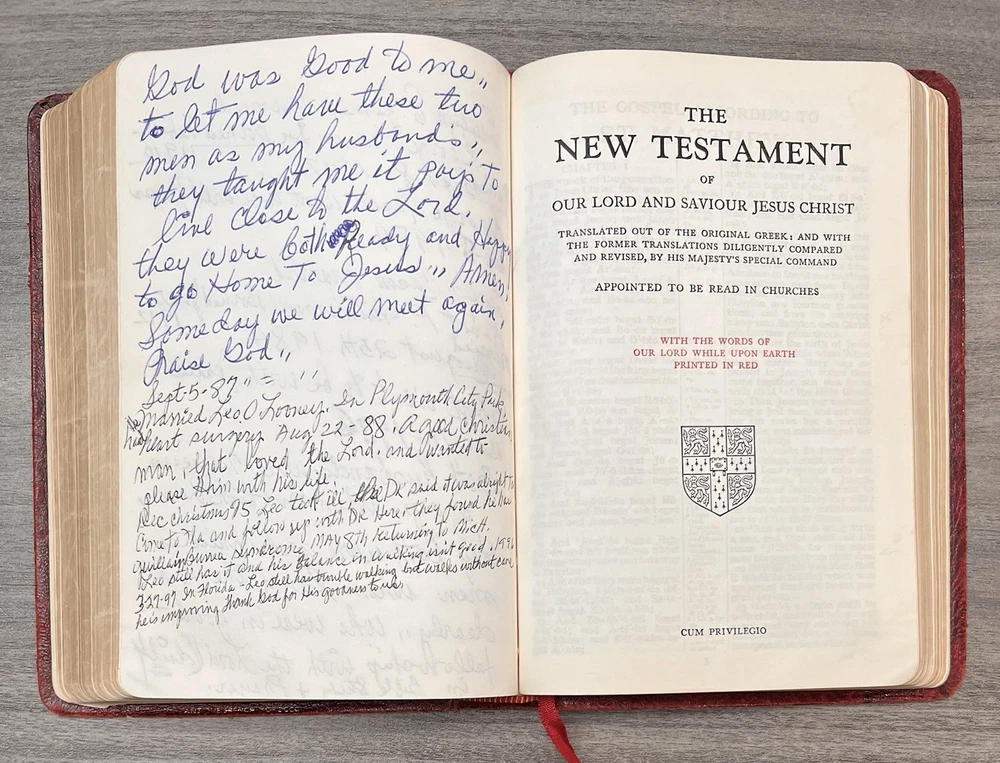 God was Good to me,,
to let me have these two
men as my husband's,,
they taught me it pays to
live close to the Lord.
they were both Ready and Happy
to go Home To Jesus,, Amen,
Someday we will meet again,
Praise God,,
Sept-5-87" = ' '
Married Leo O Looney. In Plymouth City Park
He had heart surgery Aug 22-88. A good christian
man, that loved the Lord, and wanted to
please Him with his life.
Dec christmas 95 Leo took ill, the DR said it was alright to
Come to Fla and follow up with DR Here they found he has
Guillain Burrea Syndrome, MAY 8th returning to Mich.
Leo still has it and his balance in walking isn't good. 1996
3-27-97 In Florida - Leo still has trouble walking but walks without cane
he is improving Thank God for His goodness to us.
THE
NEW TESTAMENT
OF
OUR LORD AND SAVIOUR JESUS CHRIST
TRANSLATED OUT OF THE ORIGINAL GREEK: AND WITH
THE FORMER TRANSLATIONS DILIGENTLY COMPARED
AND REVISED, BY HIS MAJESTY'S SPECIAL COMMAND
APPOINTED TO BE READ IN CHURCHES
WITH THE WORDS OF
OUR LORD WHILE UPON EARTH
PRINTED IN RED
CUM PRIVILEGIO